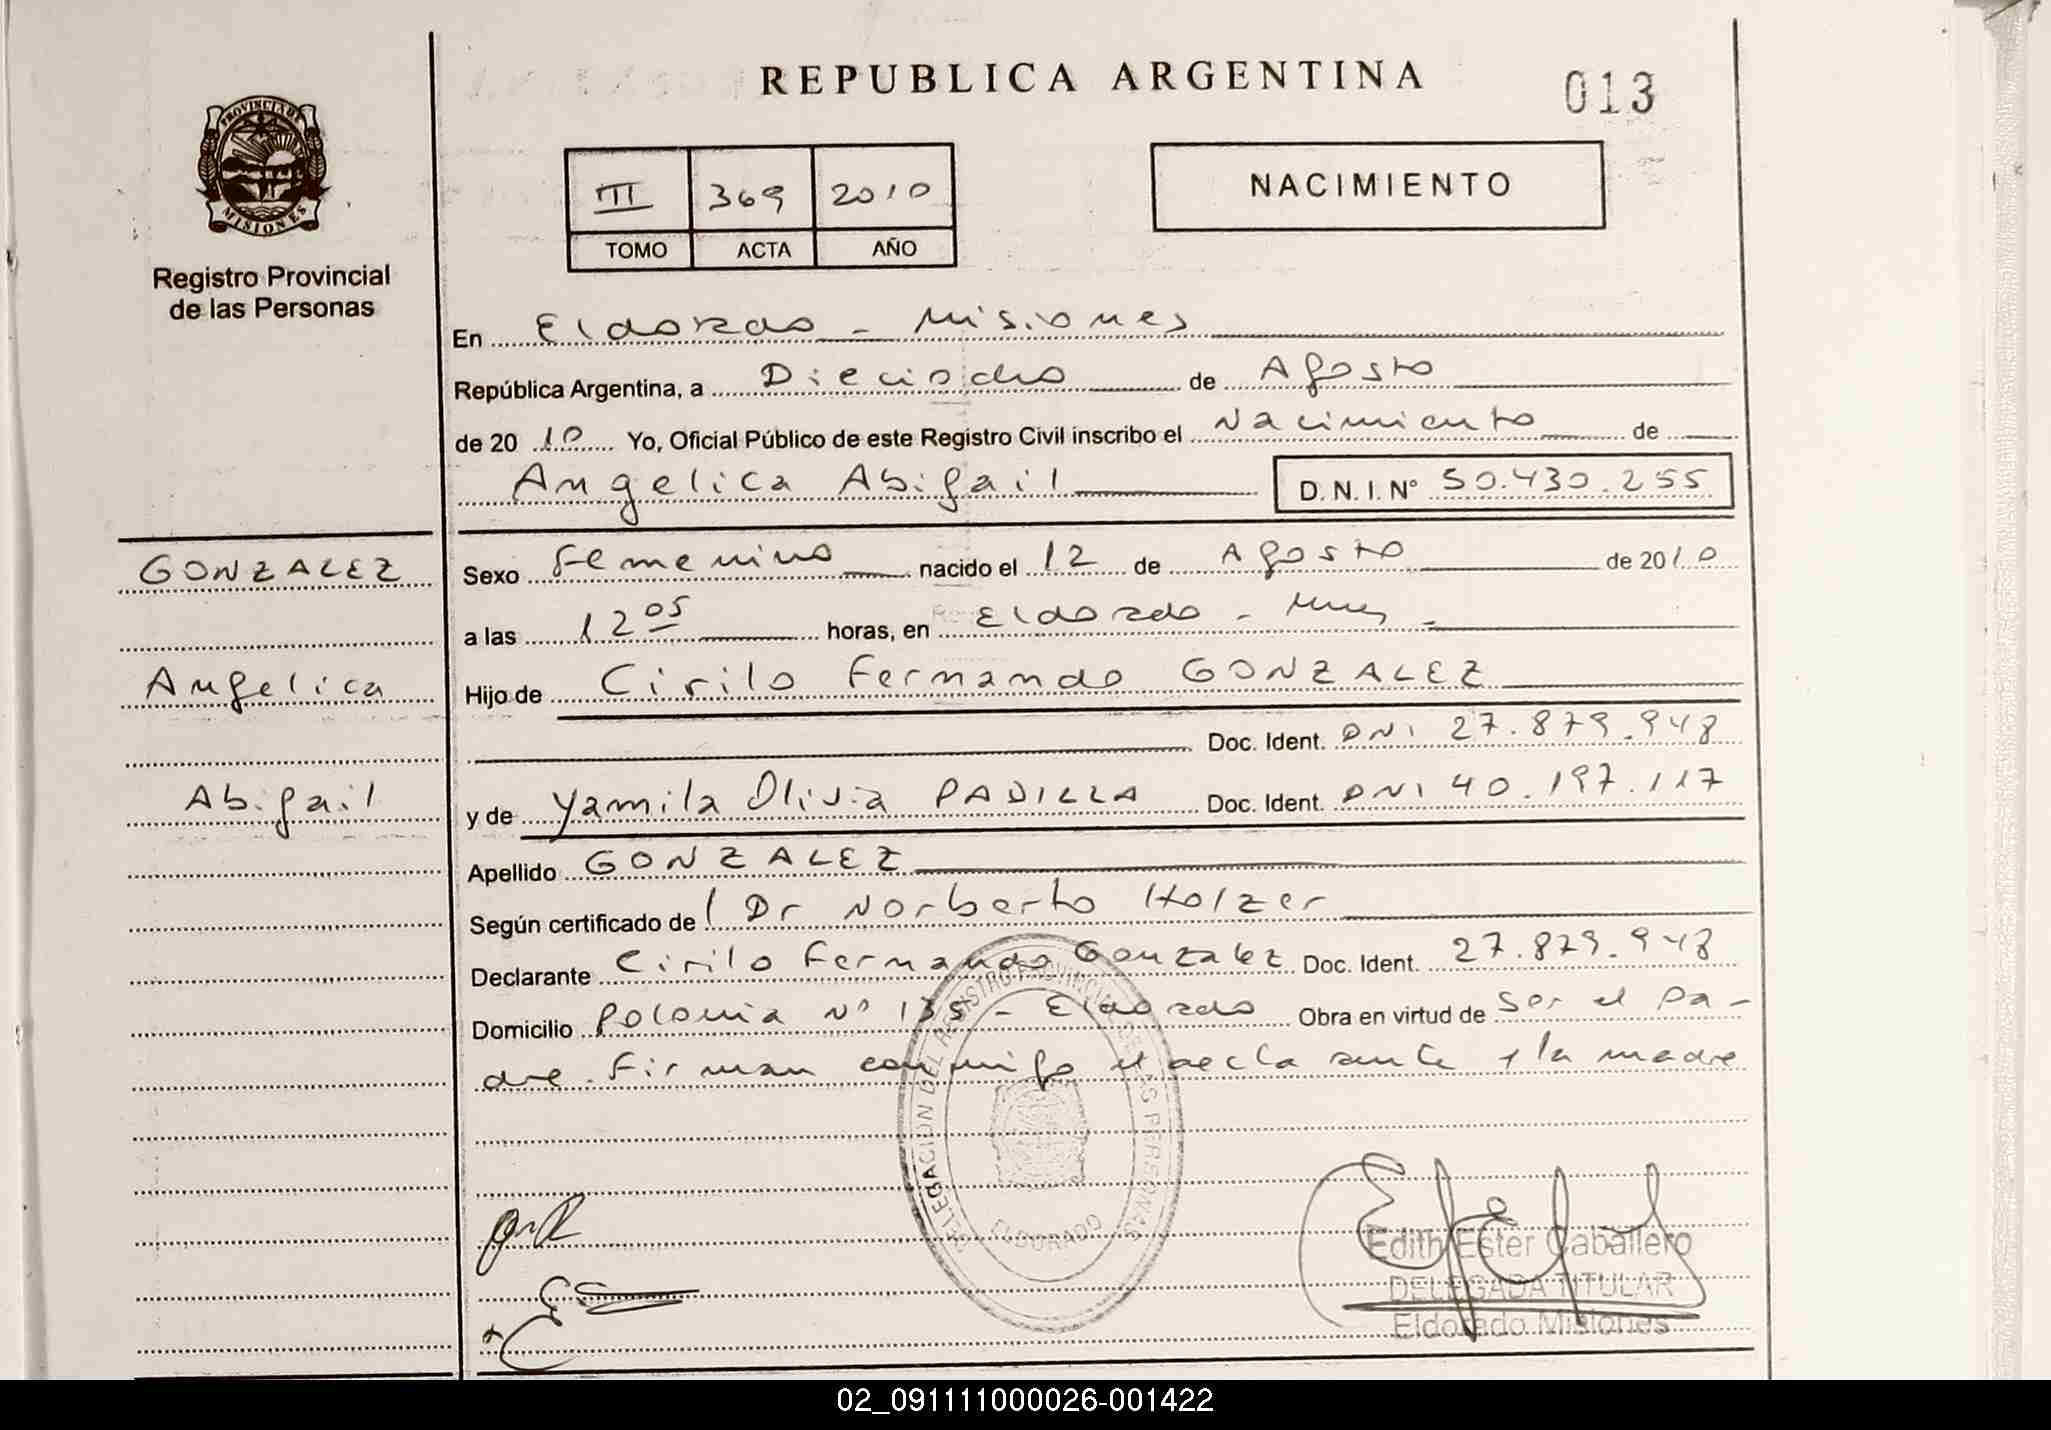 REPUBLICA ARGENTINA
013
PROVINCIA DE
MISIONES
Registro Provincial
de las Personas
III 369 2010
TOMO ACTA AÑO
NACIMIENTO
En Eldorado - Misiones
República Argentina, a Dieciocho de Agosto
de 2010 Yo, Oficial Público de este Registro Civil inscribo el Nacimiento de
Angelica Abigail D.N.I.N° 50.430.255
GONZALEZ
Angelica
Abigail
Sexo Femenino nacido el 12 de Agosto de 2010
a las 12 05 horas, en Eldorado - Mnes -
Hijo de Cirilo Fernando GONZALEZ
Doc. Ident. DNI 27.879.948
y de Yamila Olivia PADILLA Doc. Ident. DNI 40.197.117
Apellido GONZALEZ
Según certificado de Dr Norberto Holzer
Declarante Cirilo Fernando Gonzalez Doc. Ident. 27.879.948
Domicilio Polonia N° 135 - Eldorado Obra en virtud de Ser el pa-
dre. Firman conmigo el declarante y la madre
DELEGACION DEL REGISTRO PROVINCIAL DE LAS PERSONAS
ELDORADO
Edith Ester Caballero
DELEGADA TITULAR
Eldorado Misiones
02_091111000026-001422